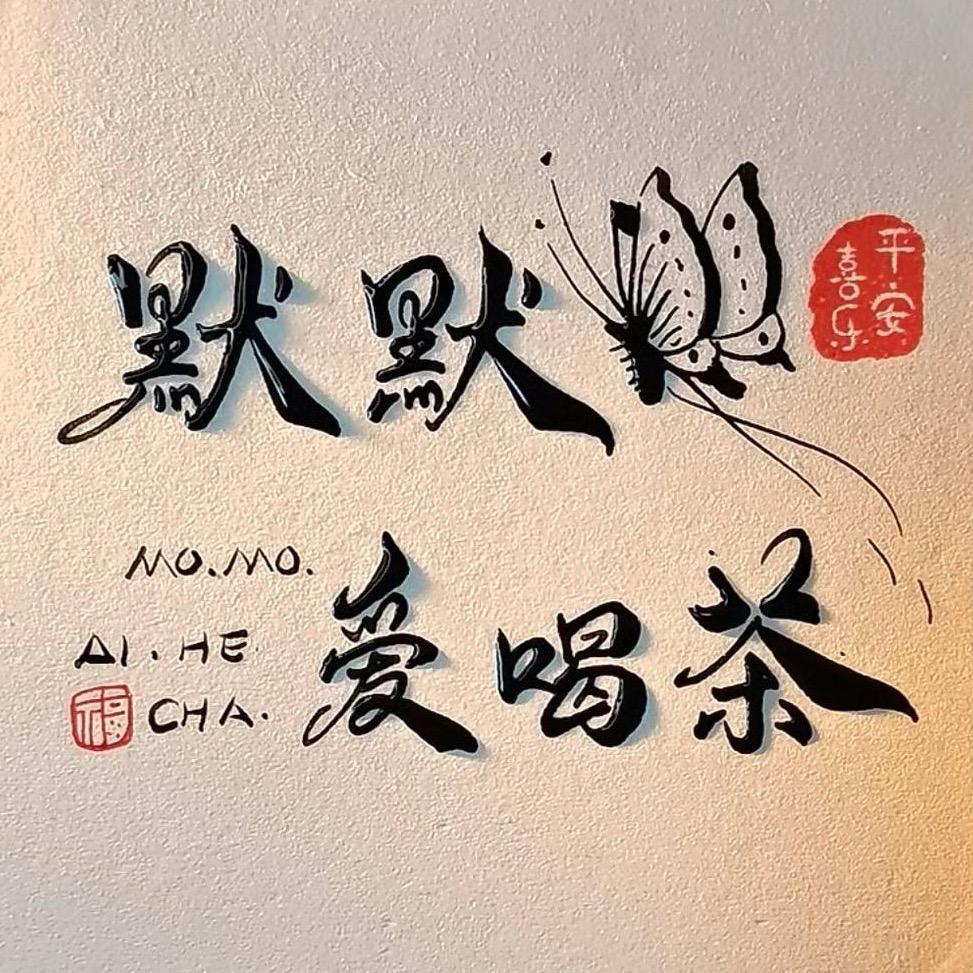 默默
平安
喜乐
MO.MO.
AI.HE
CHA.
爱喝茶
福